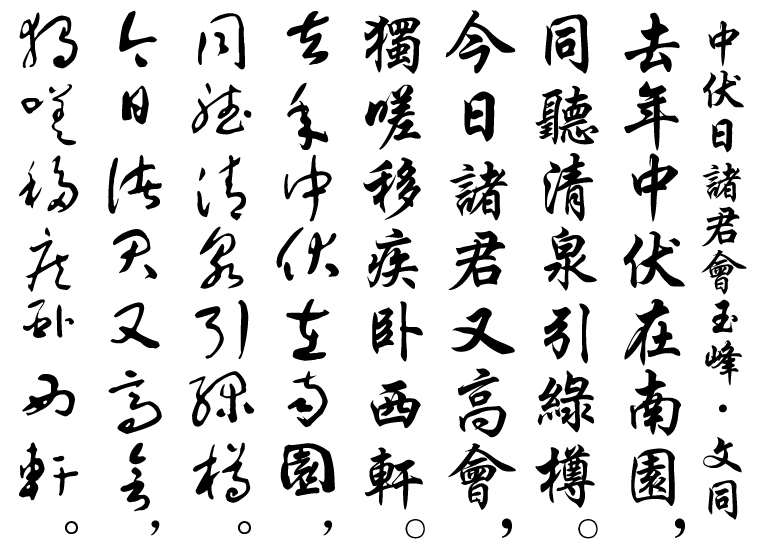 中伏日諸君會玉峰·文同
去年中伏在南園，
同聽清泉引綠樽。
今日諸君又高會，
獨嗟移疾卧西軒。
去年中伏在南園，
同聽清泉引綠樽。
今日諸君又高會，
獨嗟移疾卧西軒。